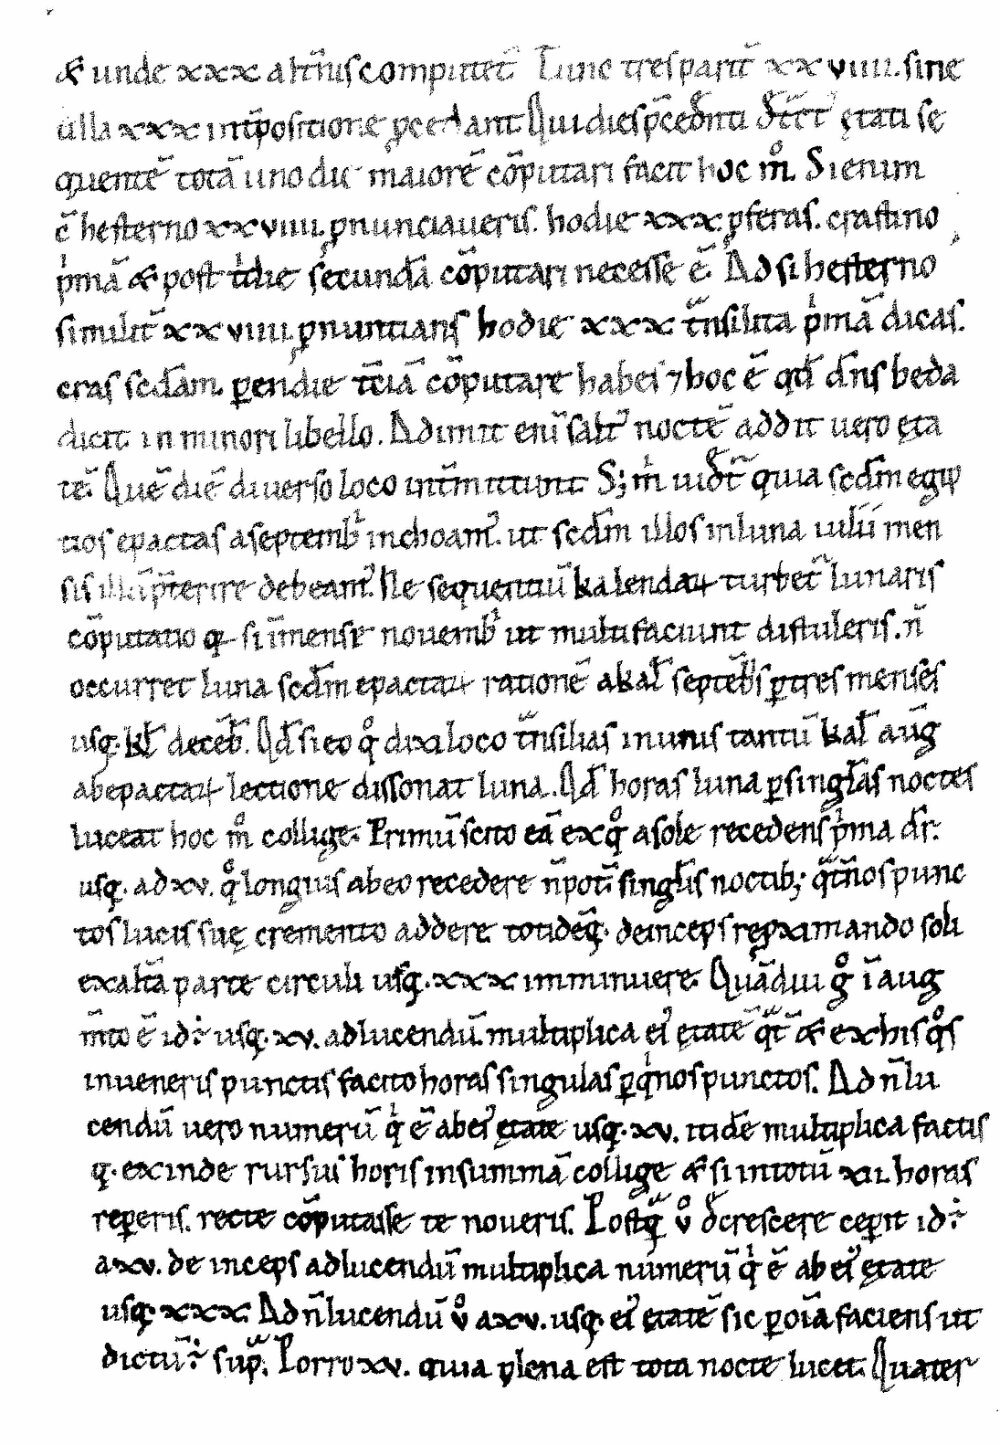 & unde xxx alt̄n̄us computet᷑. Tunc tres parit̄ xx viiii. sine
ulla xxx int̄positione p̄cedant Qui dies p̄cedn̄ti ętati se
quentē totā uno die maiorē cōputari facit hoc m̊. Si enim
c̄ hesterno xx viiii. pnunciaueris. hodie xxx. pferas. crastino
p̍mā & post t̍die secundā cōputari necesse ē. Ad si hesterno
similit̄ xx viiii. pnuntiaris hodie xxx t̄nsilita p̍mā dicas.
cras scd̄am. perendie t̄ciā cōputare habes ⁊ hoc ē qd̄ dn̄s beda
dicit in minori libello. Adimit eni᷑ salt᷑ noctē addit uero ęta
tē. Quē diē diuerso loco int̄mittunt. S; m̍ uidet᷑ quia scd̄m egip
tios epactas a septemb̍ inchoam᷑. ut scd̄m illos in luna iulii men
sis illū p̄terire debeam᷑. Ne sequentiū kalendaꝝ turbet᷑ lunaris
cōputatio q si ī mense nouemb̍ ut multi faciunt distuleris. n̄
occurret luna scd̄m epactaꝝ rationē a kal̄ septēb̍s p tres menses
usq. kl̄ decēb̄. Qd̄ si eo q̊ dixi loco t̄nsilias in unis tantū kal̄ aug̅
ab epactaꝝ lectione dissonat luna. Qd̄ horas luna p singl̄as noctes
luceat hoc m̊ collige. Primū scito eā ex q̊ a sole recedens p̍ma dr̄.
usq. ad xv. q̊ longius ab eo recedere n̄ pot᷑ singl̄is noctib; q̄t̄nos punc
tos lucis suę cremento addere totideq̄. deinceps repximando soli
ex alt̄a parte circuli usq. xxx imminuere. Quādiu g̊ ī aug
m̄to ē id ÷ usq. xv. ad lucendū multiplica ei᷑ ętatē & ex his q̊s
inueneris punctis facito horas singulas p q̍nos punctos. Ad n̄ lu
cendū uero numerū q̍ ē ab ei᷑ ętate usq. xv. itidē multiplica factis
q. exinde rursus horis in summā collige & si in totū xii. horas
repperis. recte cōputasse te noueris. Postq̄ v̊ decrescere ceperit id ÷
a xv. de inceps ad lucendū multiplica numerū q̍ ē ab ei᷑ ętate
usq. xxx. Ad n̄ lucendū v̊ a xv. usq. ei᷑ ętatē sic per oiā faciens ut
dictū ÷ sup̄. Porro xv. quia plena est tota nocte lucet. Quater